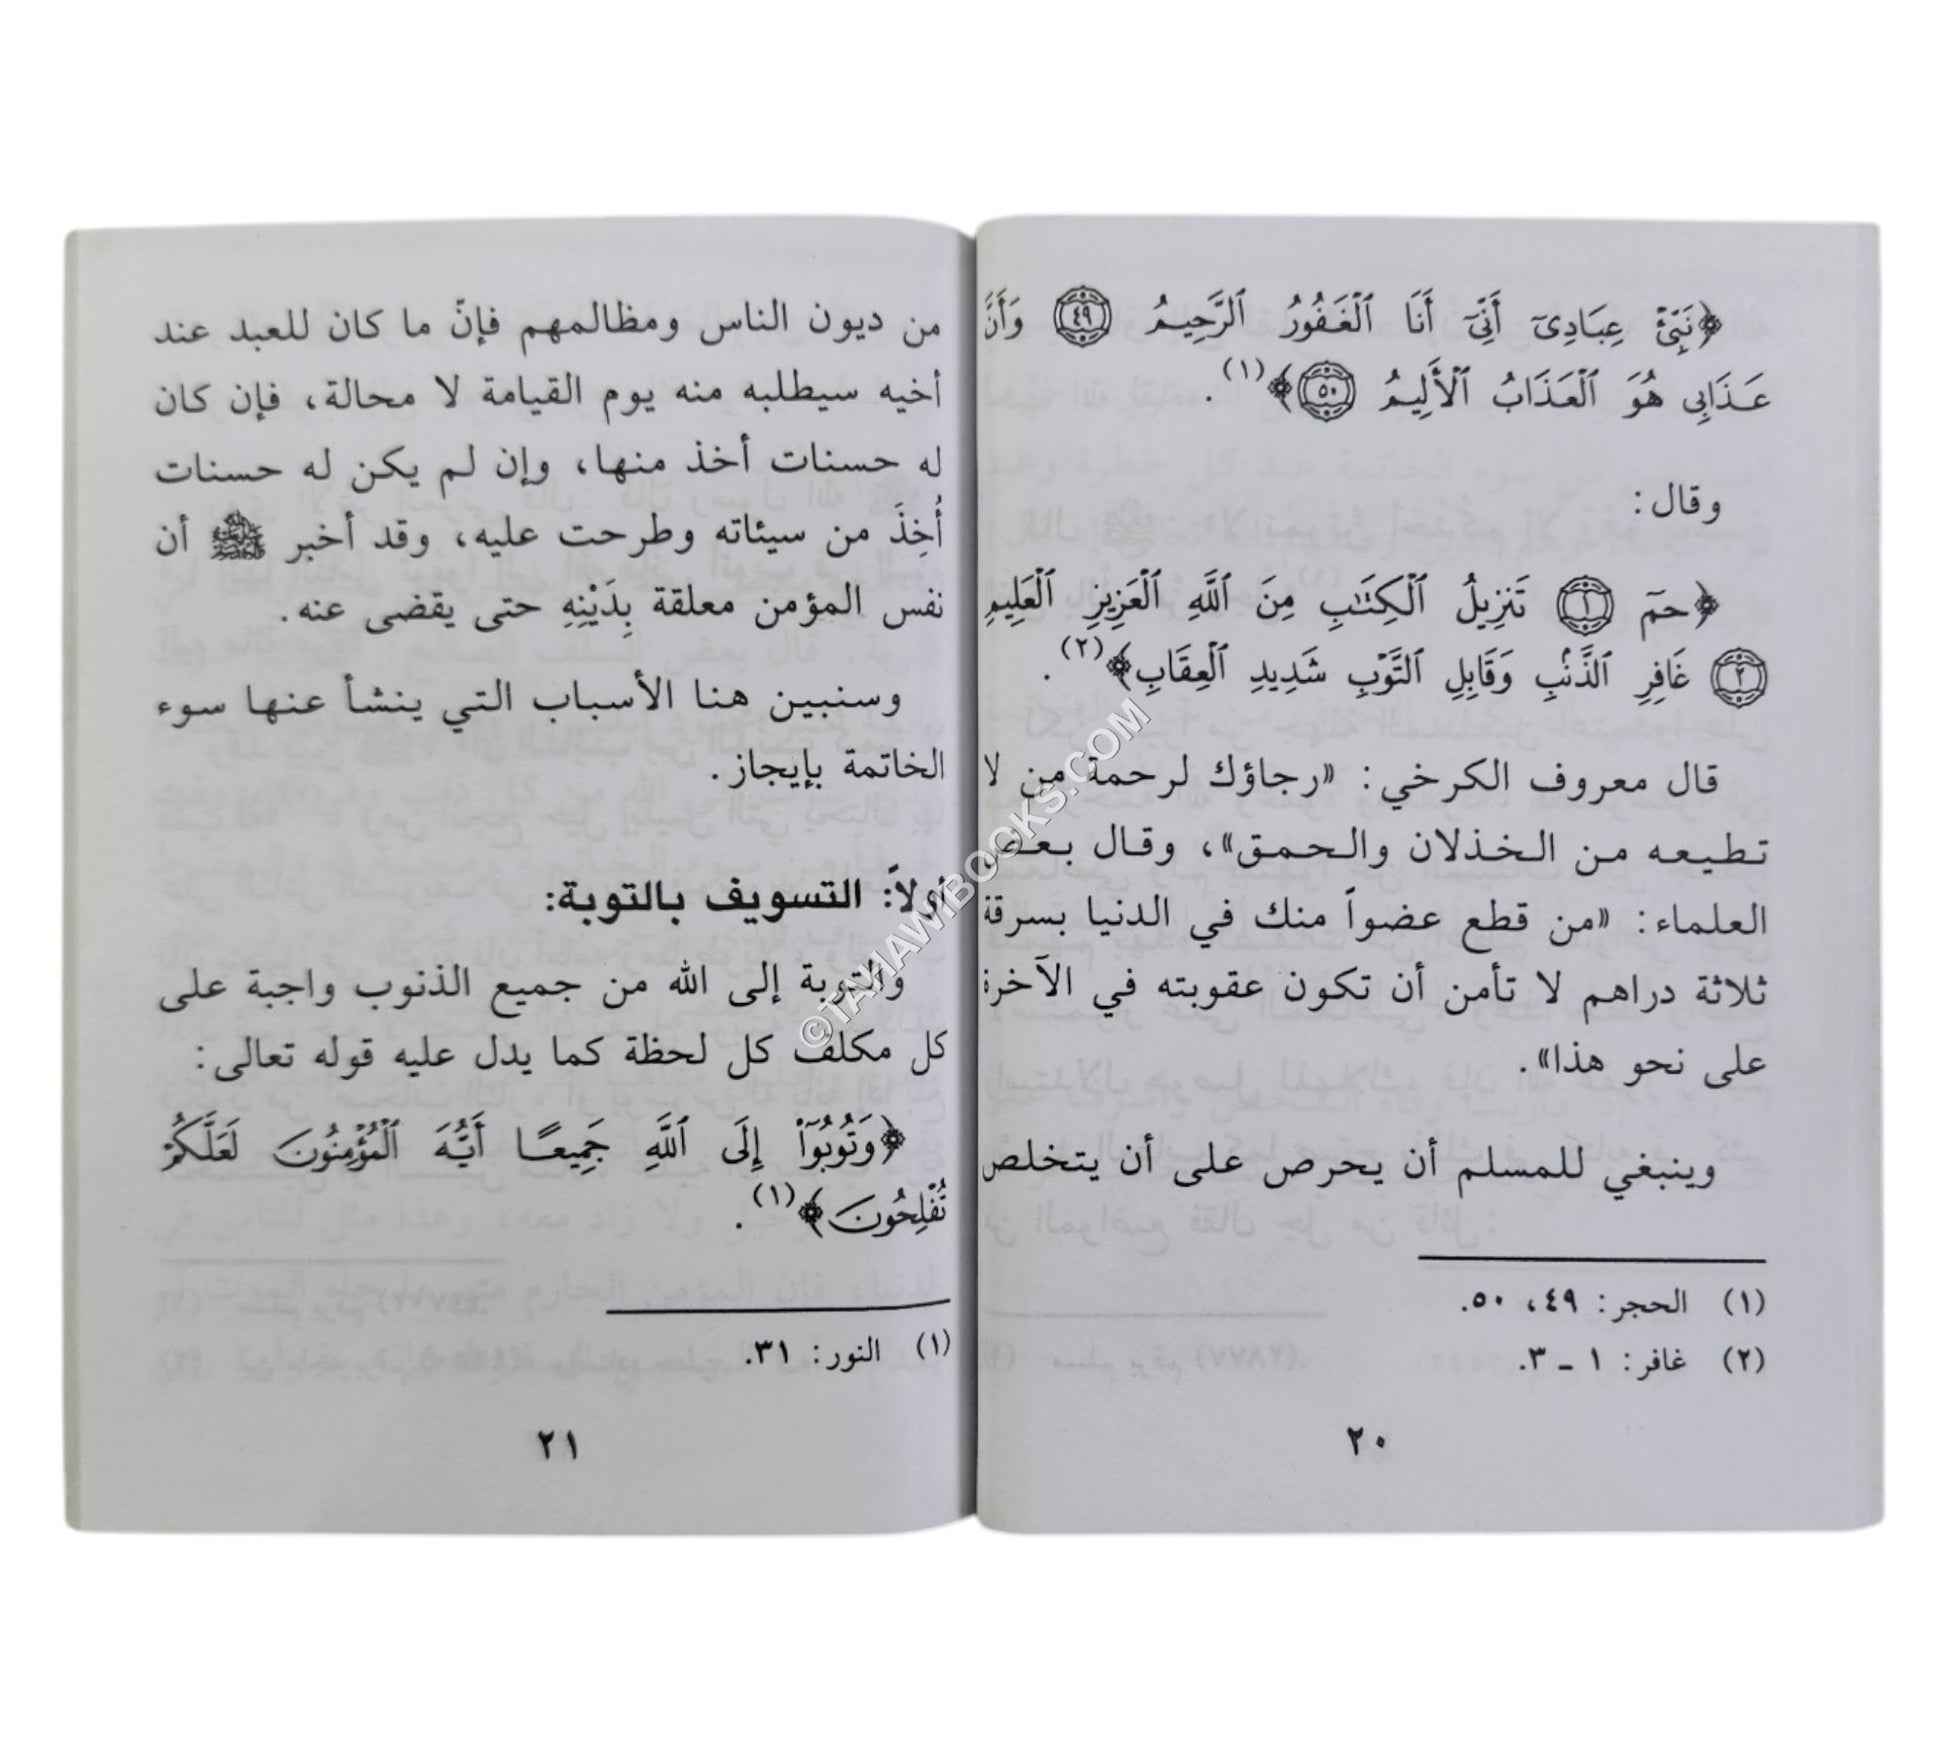 ﴿نَبِّئۡ عِبَادِىٓ أَنِّىٓ أَنَا ٱلۡغَفُورُ ٱلرَّحِيمُ ٤٩ وَأَنَّ
عَذَابِى هُوَ ٱلۡعَذَابُ ٱلۡأَلِيمُ ٥٠﴾(١).
وقال:
﴿حمٓ ١ تَنزِيلُ ٱلۡكِتَٰبِ مِنَ ٱللَّهِ ٱلۡعَزِيزِ ٱلۡعَلِيمِ
٢ غَافِرِ ٱلذَّنۢبِ وَقَابِلِ ٱلتَّوۡبِ شَدِيدِ ٱلۡعِقَابِ﴾(٢).
قال معروف الكرخي: «رجاؤك لرحمة من لا
تطيعه من الخذلان والحمق»، وقال بعض
العلماء: «من قطع عضواً منك في الدنيا بسرقة
ثلاثة دراهم لا تأمن أن تكون عقوبته في الآخرة
على نحو هذا».
وينبغي للمسلم أن يحرص على أن يتخلص
(١) الحجر: ٤٩، ٥٠.
(٢) غافر: ١ - ٣.
٢٠
من ديون الناس ومظالمهم فإنّ ما كان للعبد عند
أخيه سيطلبه منه يوم القيامة لا محالة، فإن كان
له حسنات أخذ منها، وإن لم يكن له حسنات
أُخِذَ من سيئاته وطرحت عليه، وقد أخبر ﷺ أن
نفس المؤمن معلقة بِدَيْنِهِ حتى يقضى عنه.
وسنبين هنا الأسباب التي ينشأ عنها سوء
الخاتمة بإيجاز.
أولاً: التسويف بالتوبة:
والتوبة إلى الله من جميع الذنوب واجبة على
كل مكلف كل لحظة كما يدل عليه قوله تعالى:
﴿وَتُوبُوٓاْ إِلَى ٱللَّهِ جَمِيعًا أَيُّهَ ٱلۡمُؤۡمِنُونَ لَعَلَّكُمۡ
تُفۡلِحُونَ﴾(١).
(١) النور: ٣١.
٢١
©TAHAWIBOOKS.COM